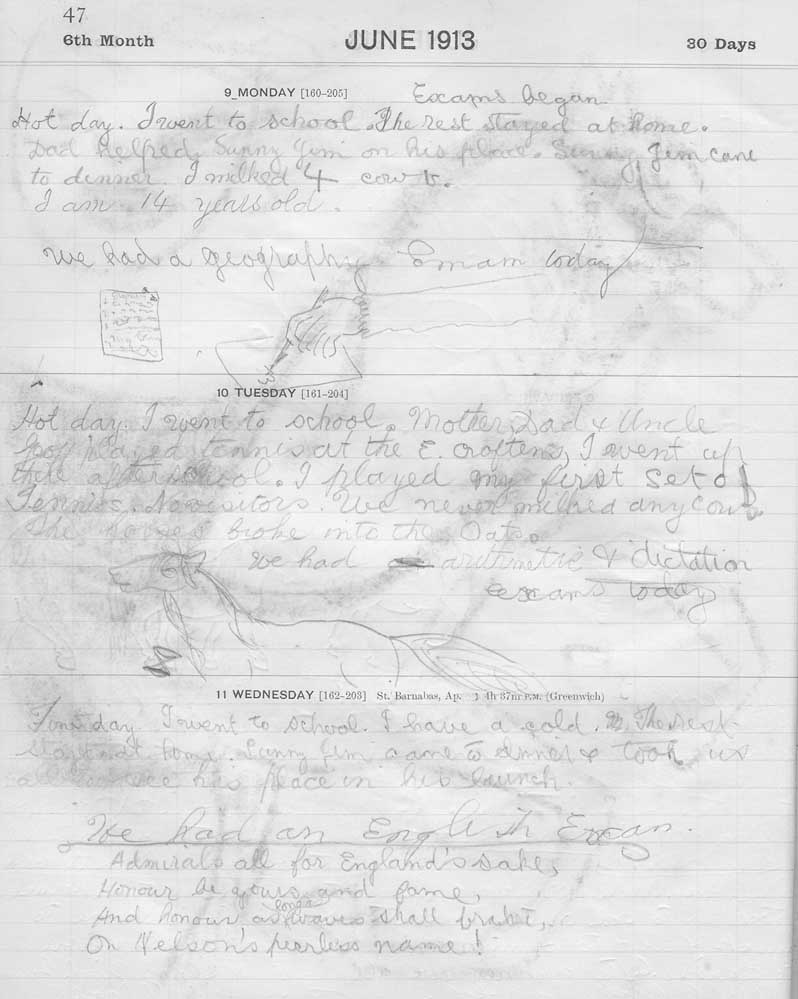 47
6th Month
JUNE 1913
30 Days
9 MONDAY [160-205]
Exams began
Hot day. I went to school. The rest stayed at home.
Dad helped Sunny Jim on his place. Sunny Jim cane
to dinner. I milked 4 cows.
I am 14 years old.
We had a geography Emam today
10 TUESDAY [161-204]
Hot day. I went to school. Mother, Dad & Uncle
played tennis at the E. Croftens, I went up
there after school. I played my first set of
Tennis. No visitors. We never milked any cows.
The horses broke into the Oats.
We had aritmetic & dictation
exams today
11 WEDNESDAY [162-203] St. Barnabas, Ap. ☽ 4h 37m P.M. (Greenwich)
Fine day. I went to school. I have a cold. The rest
stayed at home. Sunny Jim came to dinner & took us
all to see his place in his launch.
We had an English Exam.
Admirals all for England's sake,
Honour be yours and fame,
And honour as long as waves shall brake,
On Nelson's peerless name!